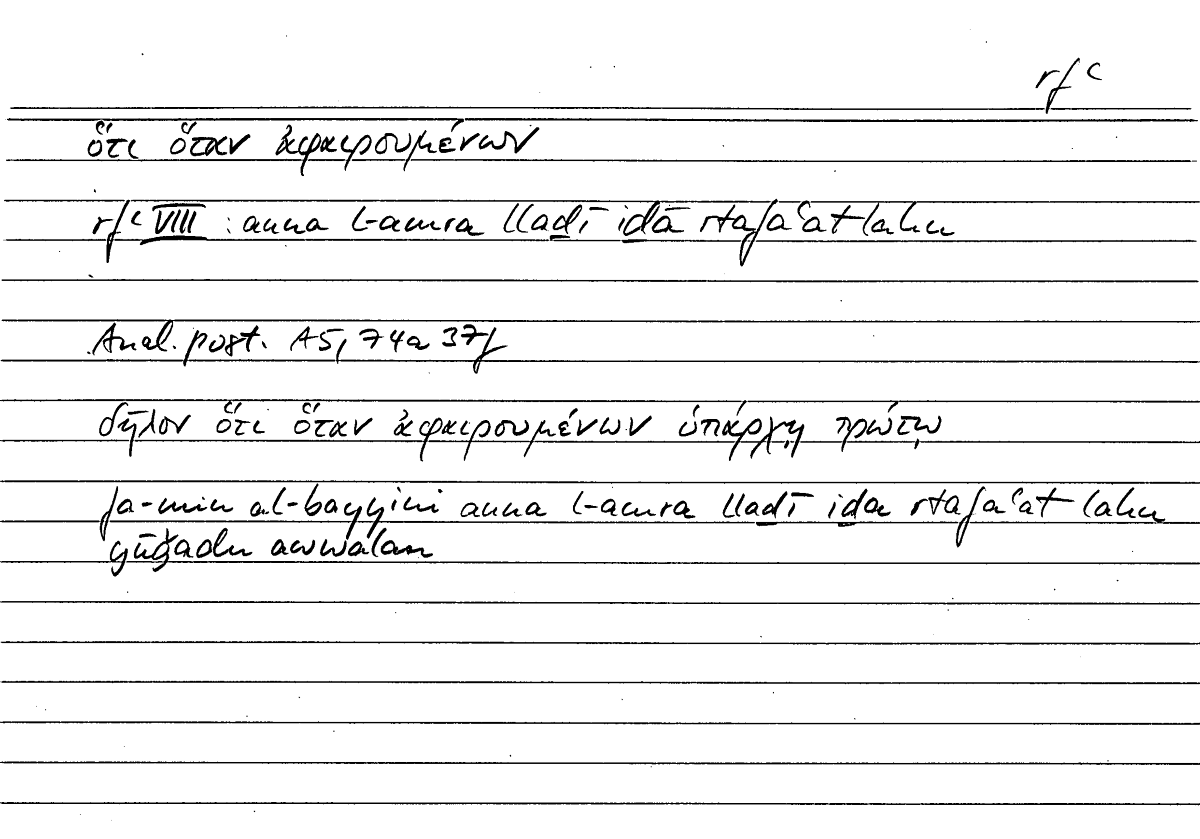 rfʿ
ὅτι ὅταν ἀφαιρουμένων
rfʿ VIII : anna l-amra lladī idā rtafaʿat lahu
Anal. post. A5, 74a 37f
δῆλον ὅτι ὅταν ἀφαιρουμένων ὑπάρχῃ πρώτῳ
fa-min al-bayyini anna l-amra lladī ida rtafaʿat lahu
yūǧadu awwalan